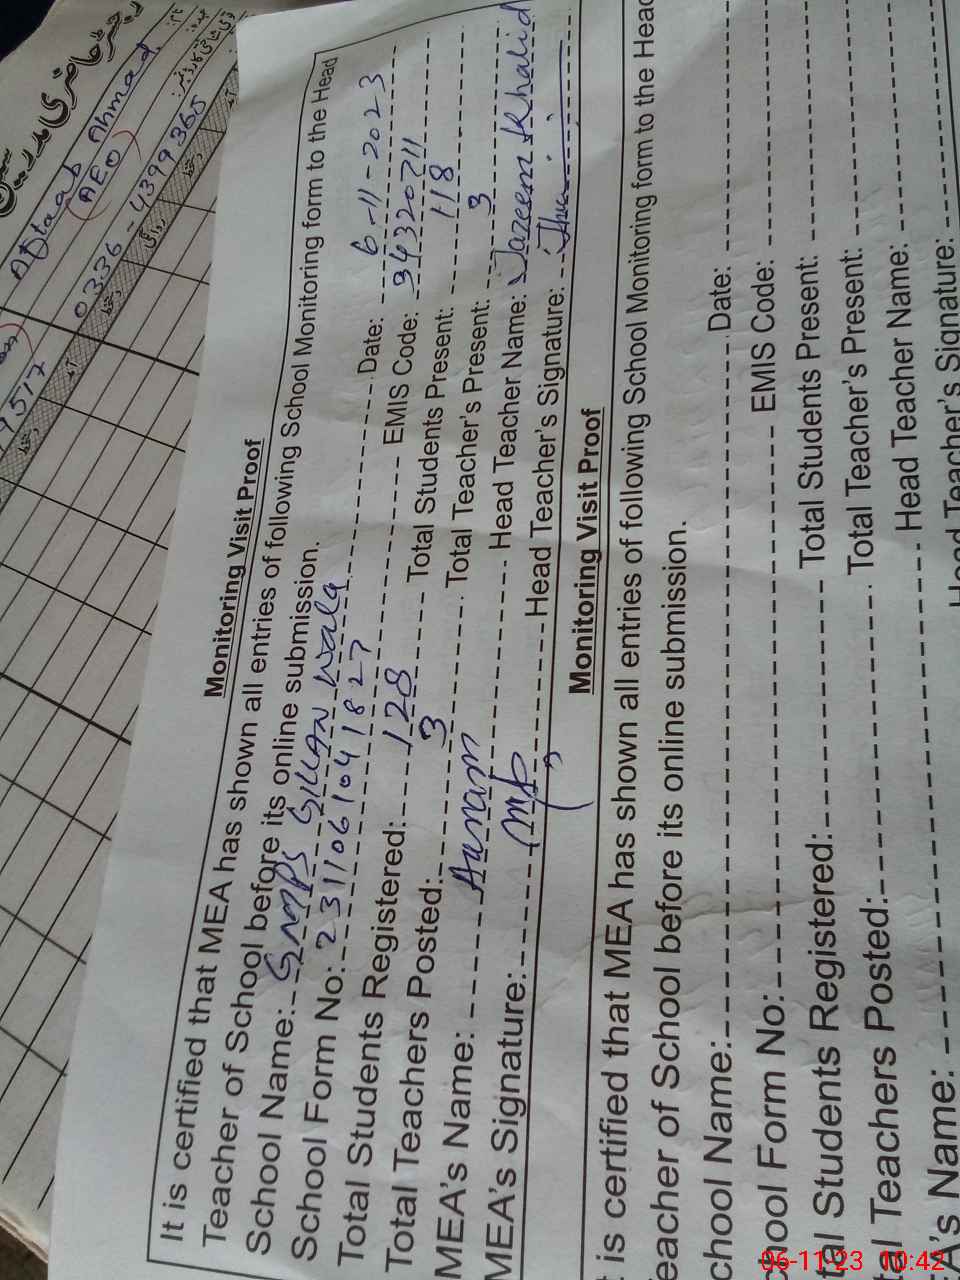 رجسٹر حاضری مدرسین
Aftaab Ahmad
(AEO)
0336-4399365
9517
Monitoring Visit Proof
It is certified that MEA has shown all entries of following School Monitoring form to the Head
Teacher of School before its online submission.
School Name: GMPS Gillan Wala Date: 6-11-2023
School Form No: 2311061041827 EMIS Code: 34320711
Total Students Registered: 128 Total Students Present: 118
Total Teachers Posted: 3 Total Teacher's Present: 3
MEA's Name: Aunam Head Teacher Name: Khalid
MEA's Signature: Head Teacher's Signature:
Monitoring Visit Proof
is certified that MEA has shown all entries of following School Monitoring form to the Head
eacher of School before its online submission.
chool Name: Date:
chool Form No: EMIS Code:
tal Students Registered: Total Students Present:
al Teachers Posted: Total Teacher's Present:
A's Name: Head Teacher Name:
Head Teacher's Signature:
06-11-23 10:42